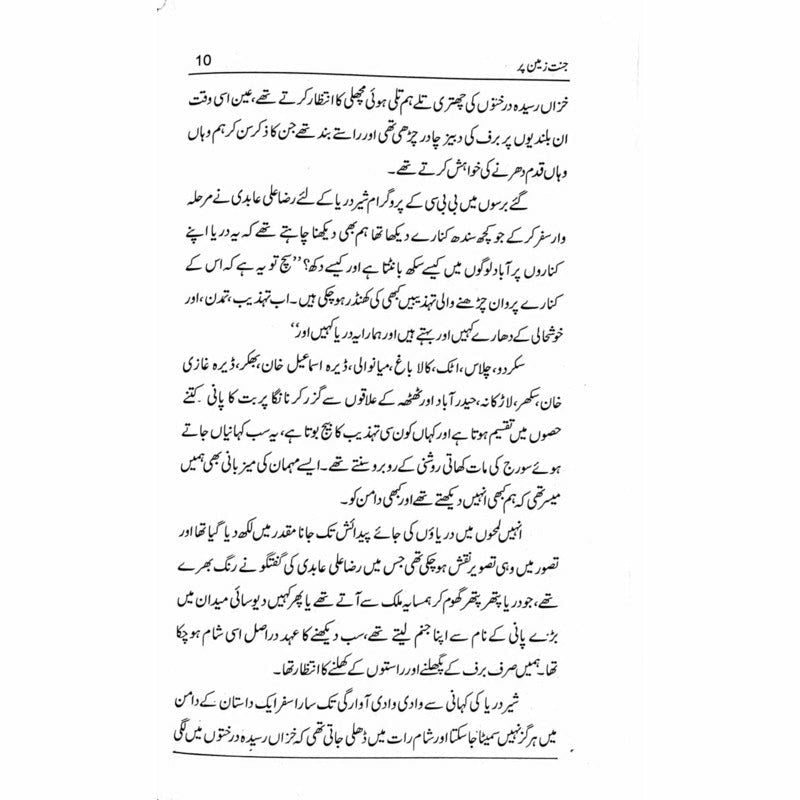 جنت زمین پر
10
خزاں رسیدہ درختوں کی چھتری تلے ہم تلی ہوئی مچھلی کا انتظار کرتے تھے، عین اسی وقت
ان بلندیوں پر برف کی دبیز چادر چڑھی تھی اور راستے بند تھے جن کا ذکر سن کر ہم وہاں
وہاں قدم دھرنے کی خواہش کرتے تھے۔
گئے برسوں میں بی بی سی کے پروگرام شیر دریا کے لئے رضا علی عابدی نے مرحلہ
وار سفر کر کے جو کچھ سندھ کنارے دیکھا تھا ہم بھی دیکھنا چاہتے تھے کہ یہ دریا اپنے
کناروں پر آباد لوگوں میں کیسے سکھ بانٹتا ہے اور کیسے دکھ؟ ”سچ تو یہ ہے کہ اس کے
کنارے پروان چڑھنے والی تہذیبیں کبھی کی کھنڈر ہو چکی ہیں۔ اب تہذیب، تمدن، اور
خوشحالی کے دھارے کہیں اور بہتے ہیں اور ہمارا یہ دریا کہیں اور“
سکردو، چلاس، اٹک، کالا باغ، میانوالی، ڈیرہ اسماعیل خان، بھکر، ڈیرہ غازی
خان، سکھر، لاڑکانہ، حیدر آباد اور ٹھٹھہ کے علاقوں سے گزر کر نانگا پربت کا پانی کتنے
حصوں میں تقسیم ہوتا ہے اور کہاں کون سی تہذیب کا بیج بوتا ہے، یہ سب کہانیاں جاتے
ہوئے سورج کی مات کھاتی روشنی کے روبرو سنتے تھے۔ ایسے مہمان کی میزبانی بھی ہمیں
میسر تھی کہ ہم کبھی انہیں دیکھتے تھے اور کبھی دامن کو۔
انہیں لمحوں میں دریاؤں کی جائے پیدائش تک جانا مقدر میں لکھ دیا گیا تھا اور
تصور میں وہی تصویر نقش ہو چکی تھی جس میں رضا علی عابدی کی گفتگو نے رنگ بھرے
تھے، جو دریا پتھر پتھر گھوم کر ہمسایہ ملک سے آتے تھے یا پھر کہیں دیوسائی میدان میں
بڑے پانی کے نام سے اپنا جنم لیتے تھے، سب دیکھنے کا عہد دراصل اسی شام ہو چکا
تھا۔ ہمیں صرف برف کے پگھلنے اور راستوں کے کھلنے کا انتظار تھا۔
شیر دریا کی کہانی سے وادی وادی آوارگی تک سارا سفر ایک داستان کے دامن
میں ہرگز نہیں سمیٹا جا سکتا اور شام رات میں ڈھلی جاتی تھی کہ خزاں رسیدہ درختوں میں لگی